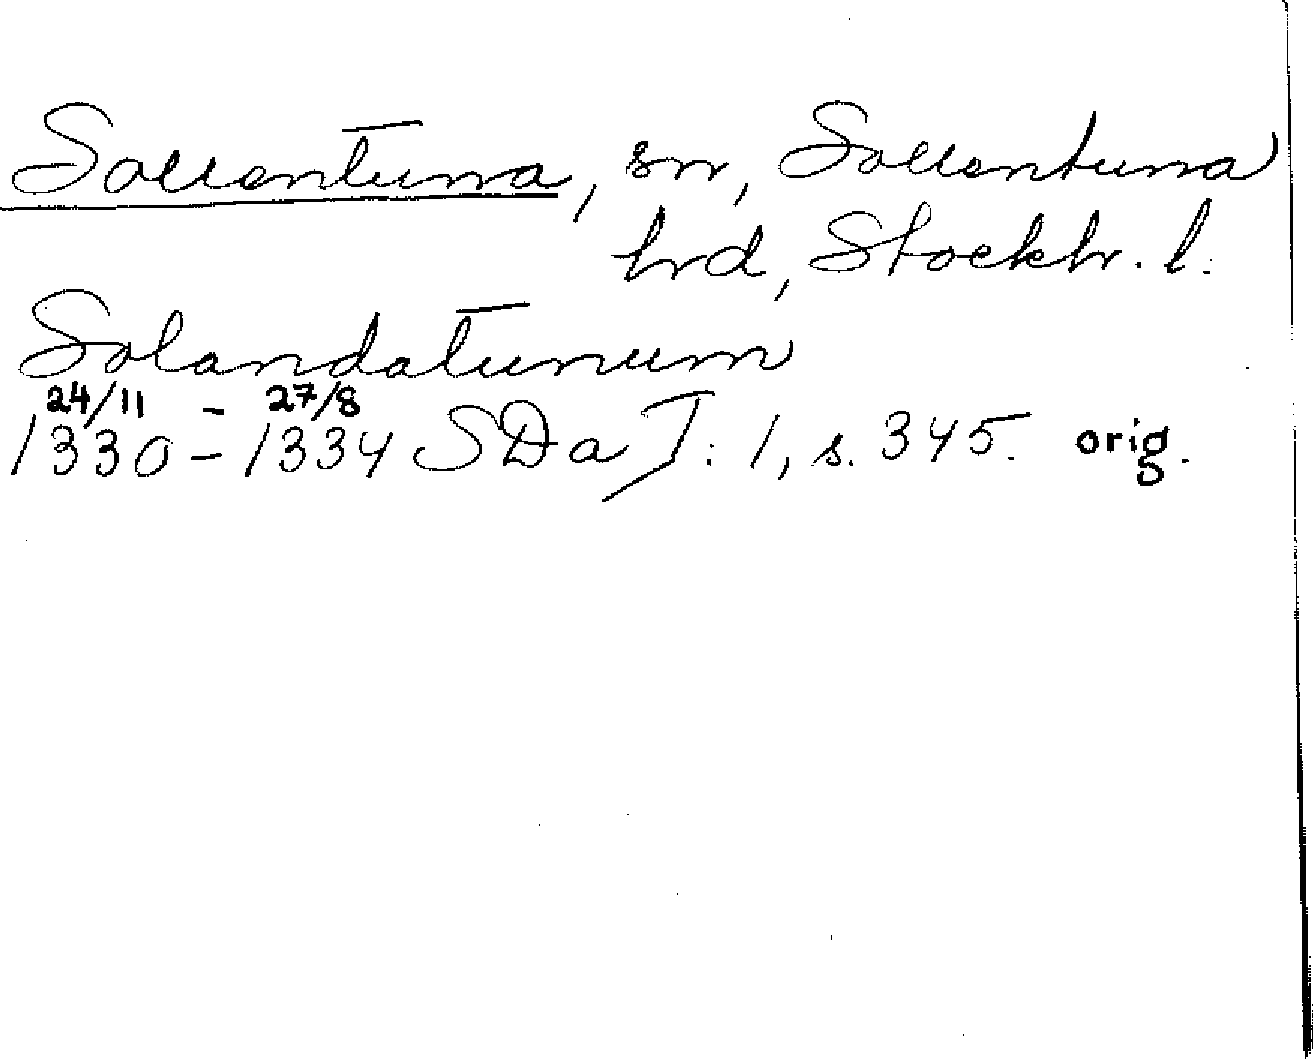 Sollentuna, sn, Sollentuna
hrd, Stockh. l.
Solandatunum
24/11 - 27/8
1330-1334 SDa I: 1, s. 345. orig.